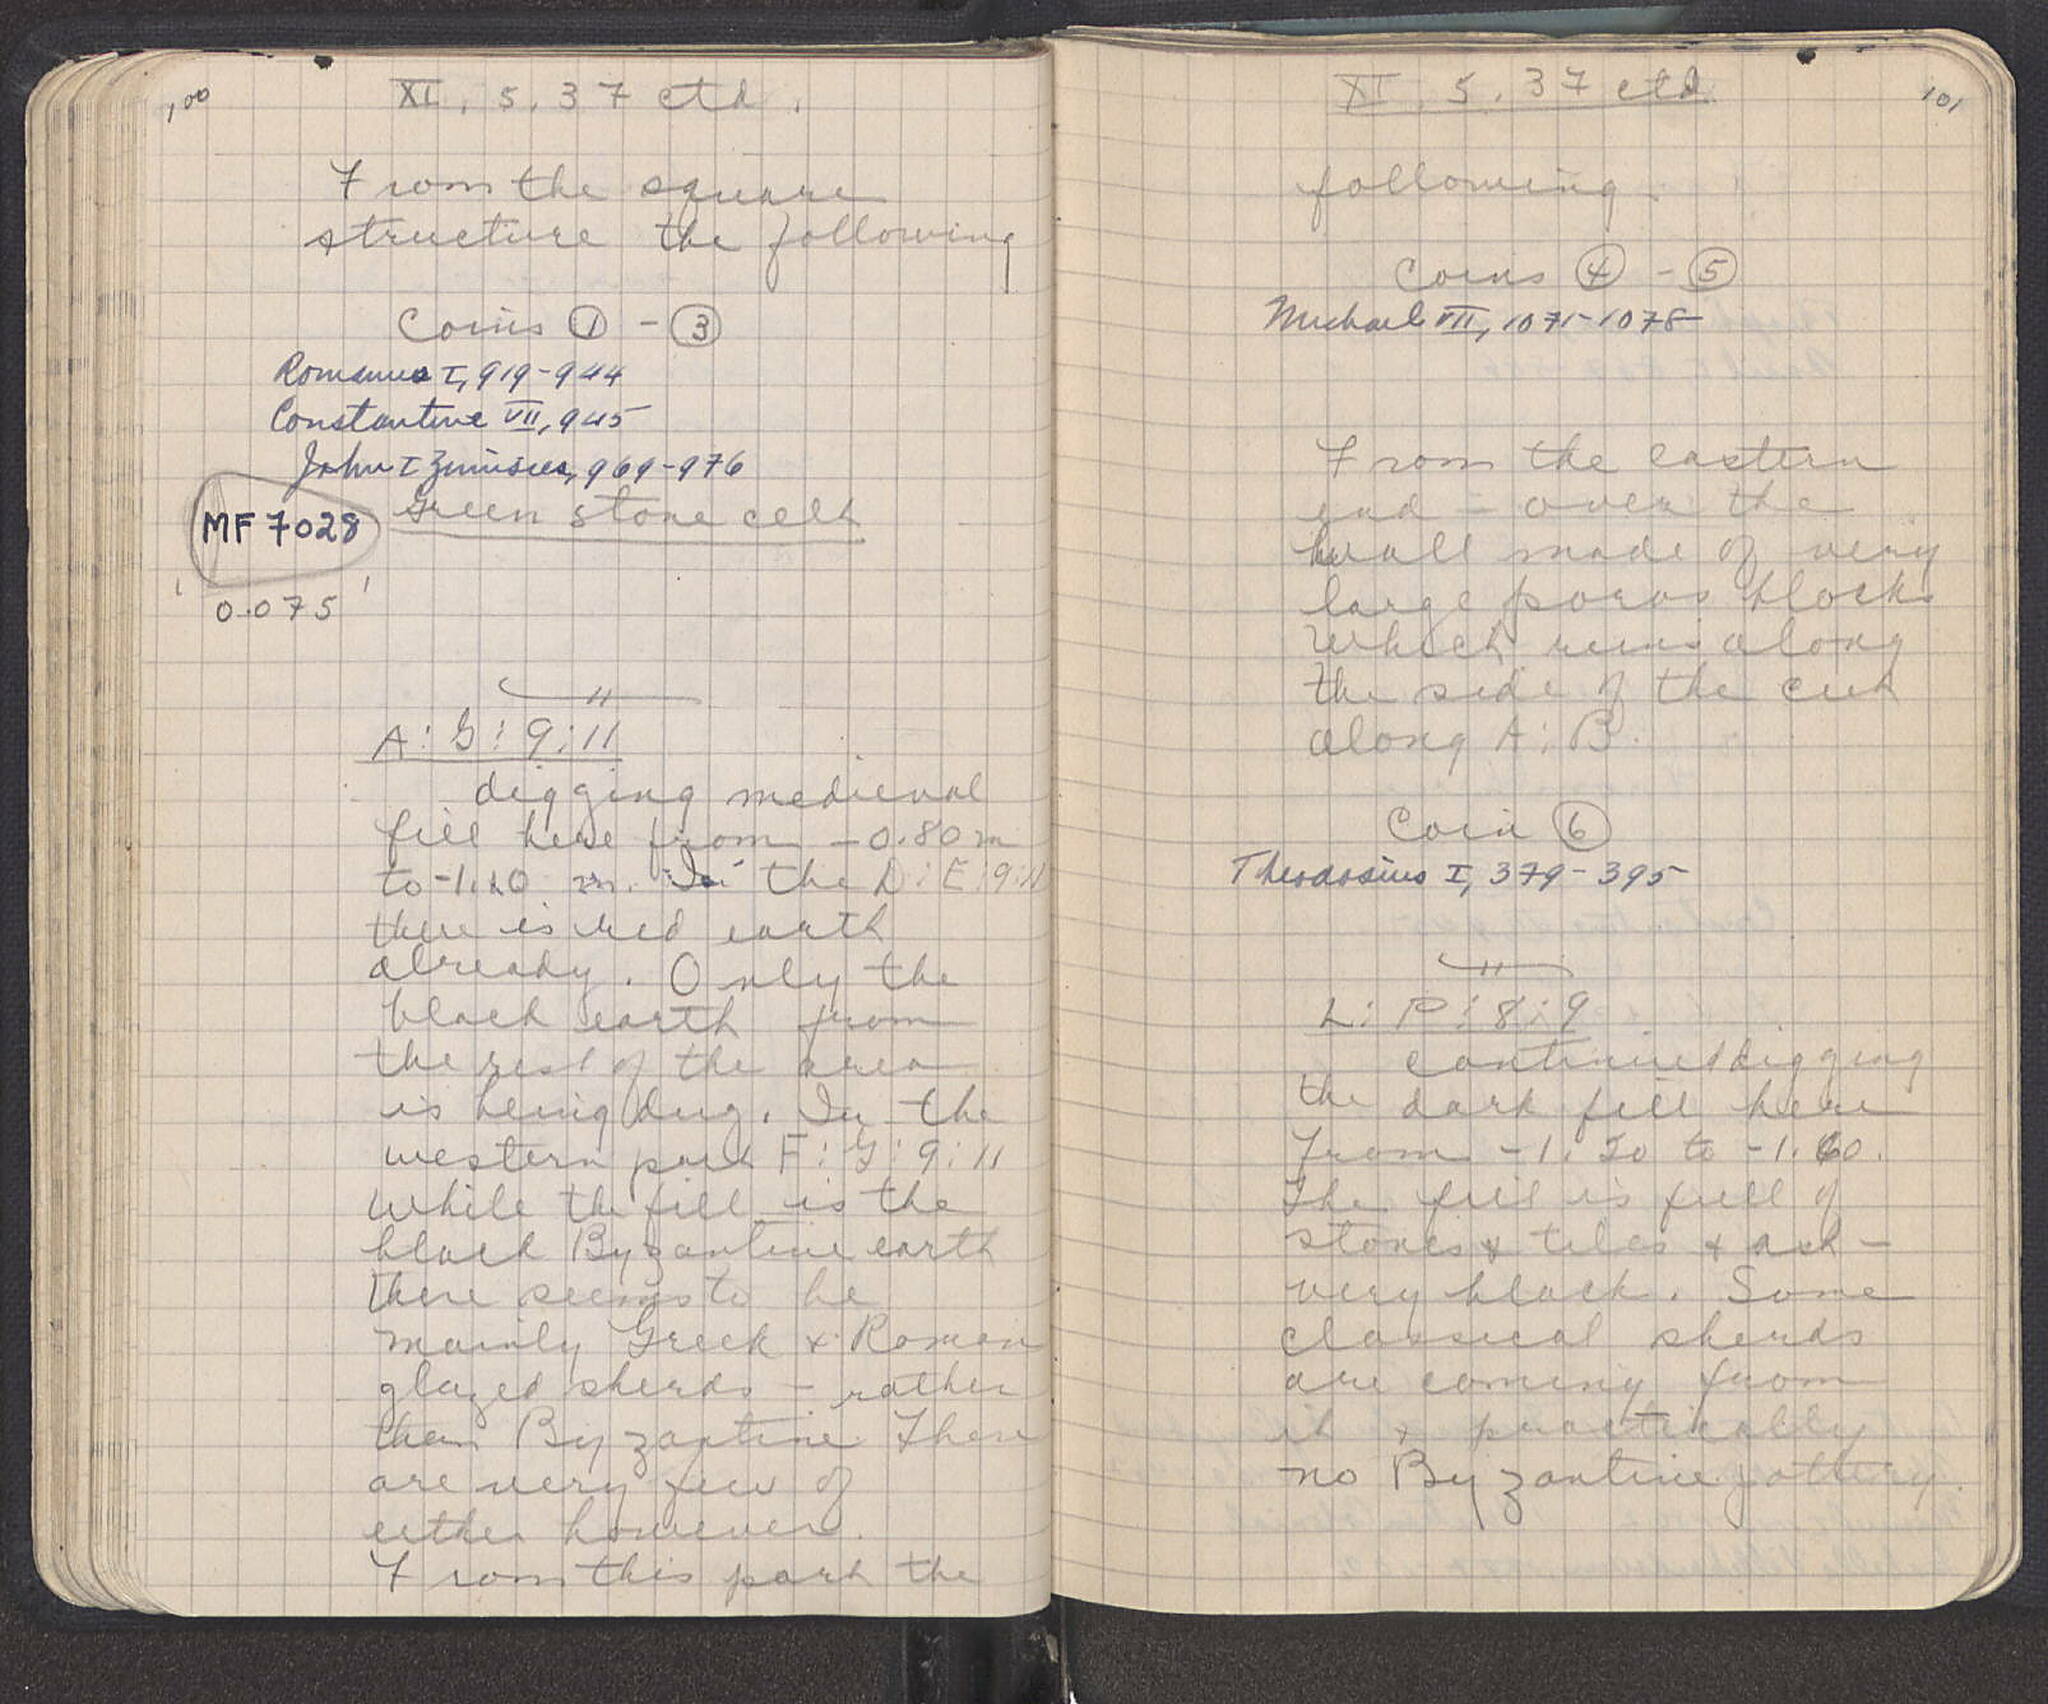 100
XI. 5. 37 ctd.
From the square
structure the following
Coins ① - ③
Romanus I, 919-944
Constantine VII, 945
John I Zimisces, 969-976
MF 7028
Green stone celt
0.075
A:G:9:11
digging medieval
fill here from -0.80 m
to -1.20 m. In the D:E:9:11
there is red earth
already. Only the
black earth from
the rest of the area
is being dug. In the
western part F:G:9:11
while the fill is the
black Byzantine earth
there seems to be
mainly Greek & Roman
glazed sherds - rather
than Byzantine. There
are very few of
either however.
From this part the
101
XI. 5. 37 ctd
following.
Coins ④ - ⑤
Michael VII, 1071-1078
From the eastern
end - over the
wall made of very
large poros blocks
which runs along
the side of the cut
along A:B.
Coin ⑥
Theodosius I, 379-395
L:P:8:9
continued digging
the dark fill here
from -1.20 to -1.60.
The fill is full of
stones & tiles & ash -
very black. Some
classical sherds
are coming from
it & practically
no Byzantine pottery.